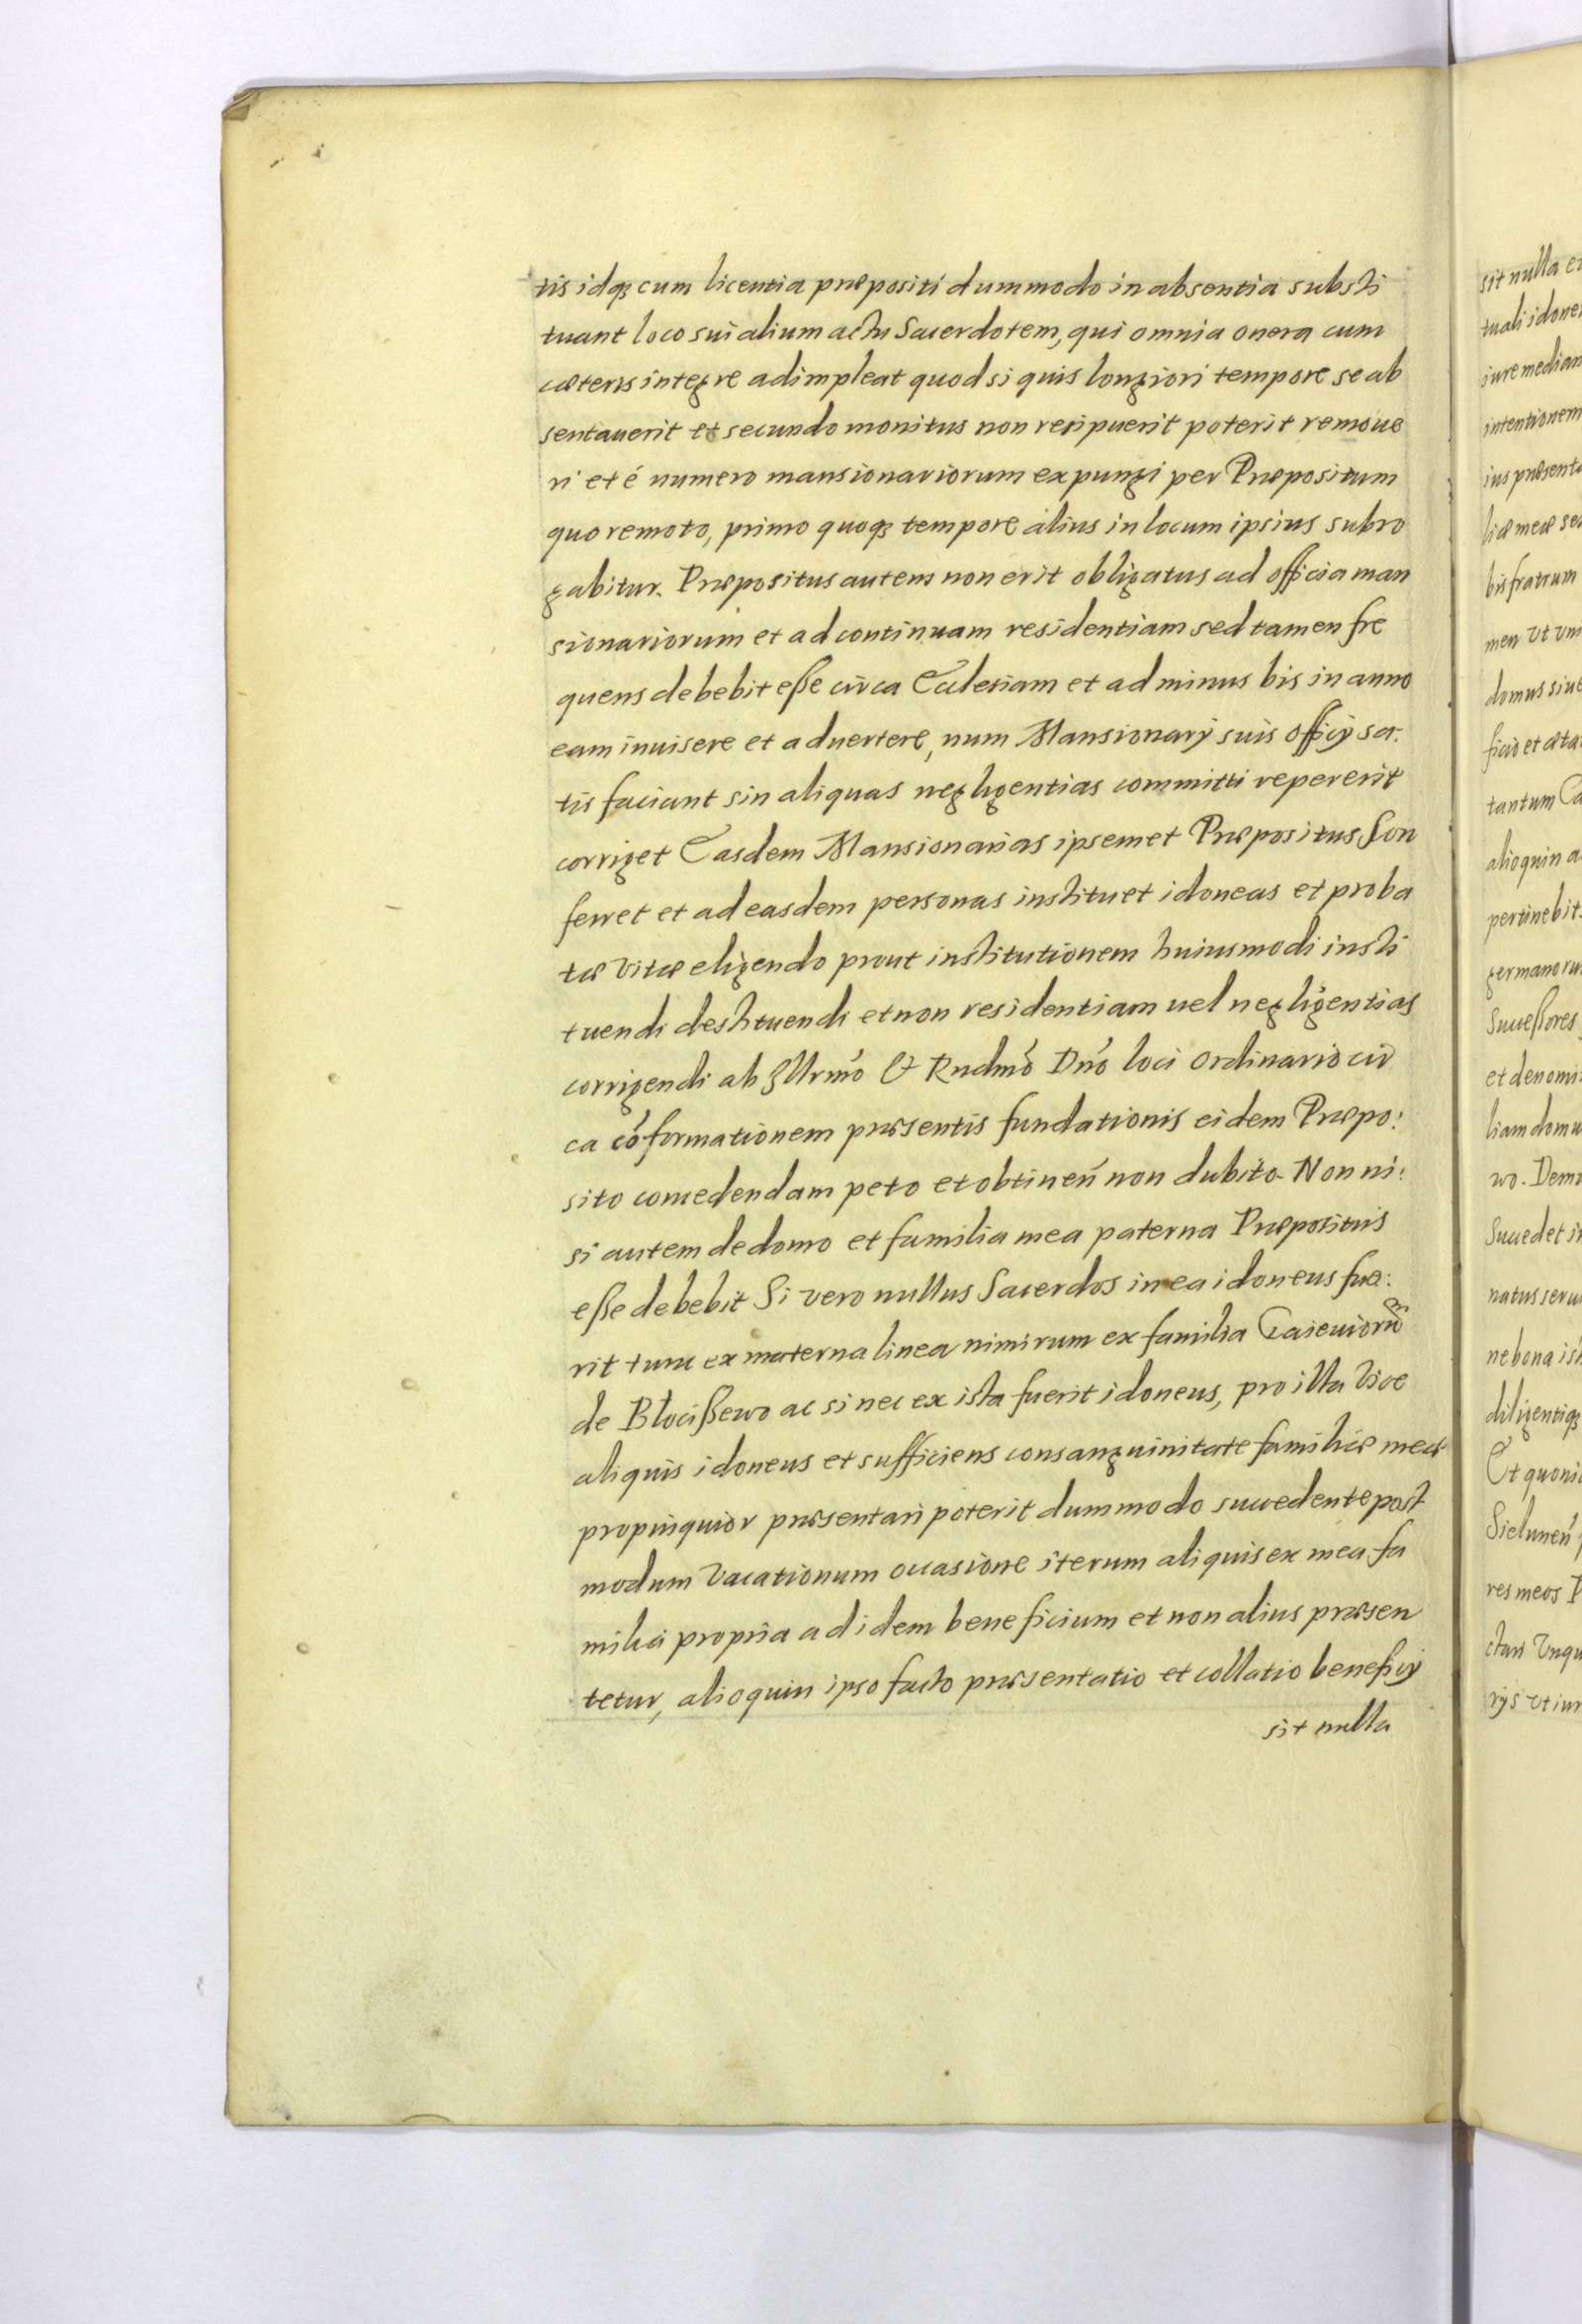 tis idq; cum licentia præpositi dummodo in absentia substi
tuant loco sui alium actu Sacerdotem, qui omnia onera cum
cæteris integre adimpleat quod si quis longiori tempore se ab
sentauerit et secundo monitus non resipuerit poterit remoue
ri et é numero mansionariorum expungi per Præpositum
quo remoto, primo quoq; tempore alius in locum ipsius subro
gabitur. Præpositus autem non erit obligatus ad officia man
sionariorum et ad continuam residentiam sed tamen fre
quens debebit eße circa Ecclesiam et ad minus bis in anno
eam inuisere et aduertere, num Mansionarij suis officij sa:
tis faciant sin aliquas negligentias committi repererit
corriget Easdem Mansionarias ipsemet Præpositus Con
ferret et ad easdem personas instituet idoneas et proba
tæ vitæ eligendo prout institutionem huiusmodi insti
tuendi destituendi et non residentiam uel negligentias
corrigendi ab Illrmo Et Rndmo Dno loci Ordinario cir
ca cōformationem præsentis fundationis eidem Præpo:
sito concedendam peto et obtineri non dubito. Non ni:
si autem de domo et familia mea paterna Præpositus
eße debebit Si vero nullus Sacerdos in ea idoneus fue:
rit tunc ex materna linea nimirum ex familia Gaieuiorū
de Blocißewo ac si nec ex ista fuerit idoneus, pro illa vice
aliquis idoneus et sufficiens consanguinitate familiæ meæ
propinquior præsentari poterit dummodo succedente post
modum vacationum occasione iterum aliquis ex mea fa
milia propria ad idem beneficium et non alius præsen
tetur, alioquin ipso facto præsentatio et collatio beneficij
sit nulla
sit nulla
tuali idone
iure median
intentionem
ius præsent
liæ meæ se
bis fratrum
men vt vn
domus siue
ficio et æta
tantum Ca
alioquin a
pertinebit.
germanoru
Succeßores
et denomi
liam domu
wo. Dem
Succedet i
natus seru
ne bona is
diligentiq;
Et quoni
res meos P
ctari Vnqu
rijs vt iur